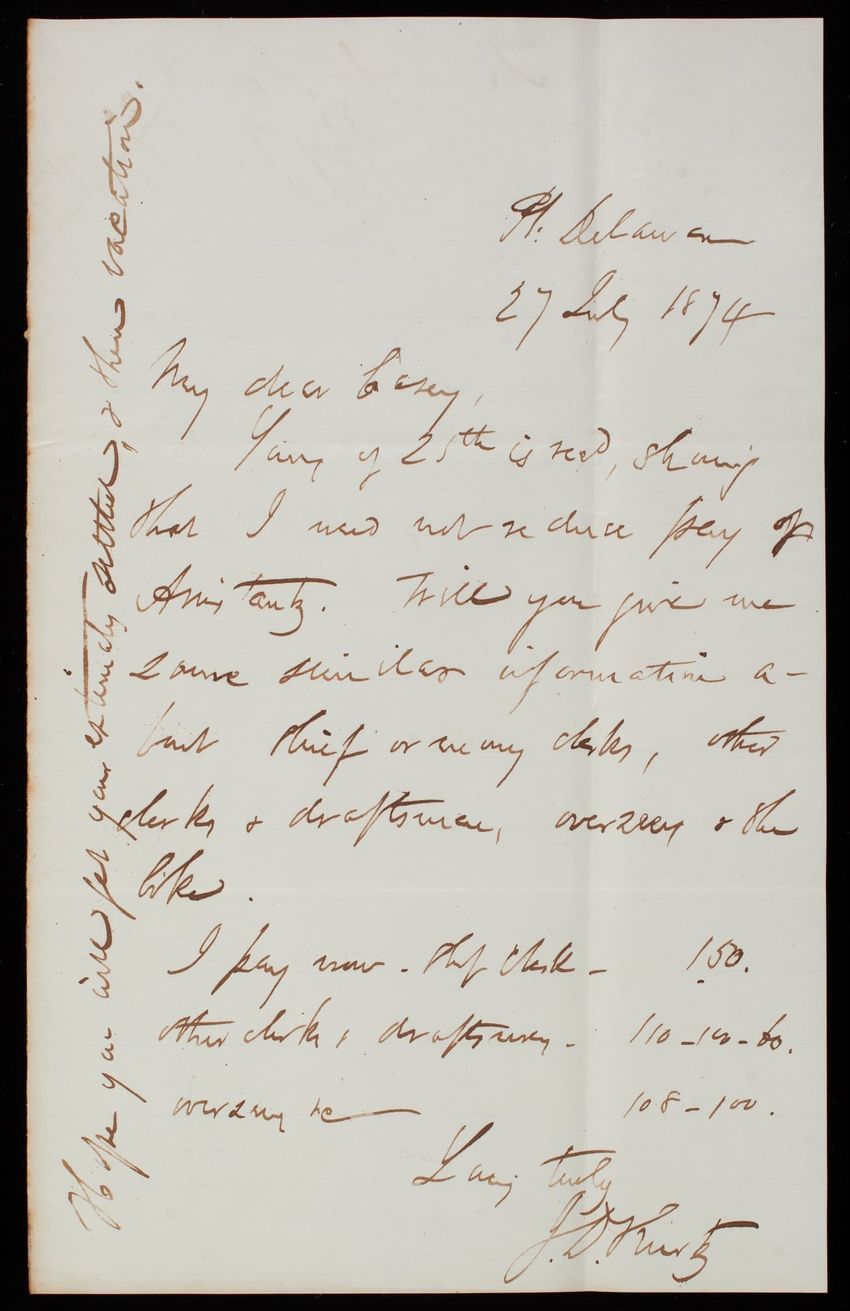 Ft. Delaware
27 July 1874
My dear Casey,
Yours of 25th is recd, showing
that I need not reduce pay of
Assistants. Will you give me
some similar information a-
bout chief or money clerks, other
clerks & draftsmen, overseers & the
like.
I pay now - chf clerk - 150.
other clerks & draftsmen - 110-100-60.
overseers &c 108-100.
Yours truly
J.D. Kurtz
Hope you will get your estimates settled, & then vacation.